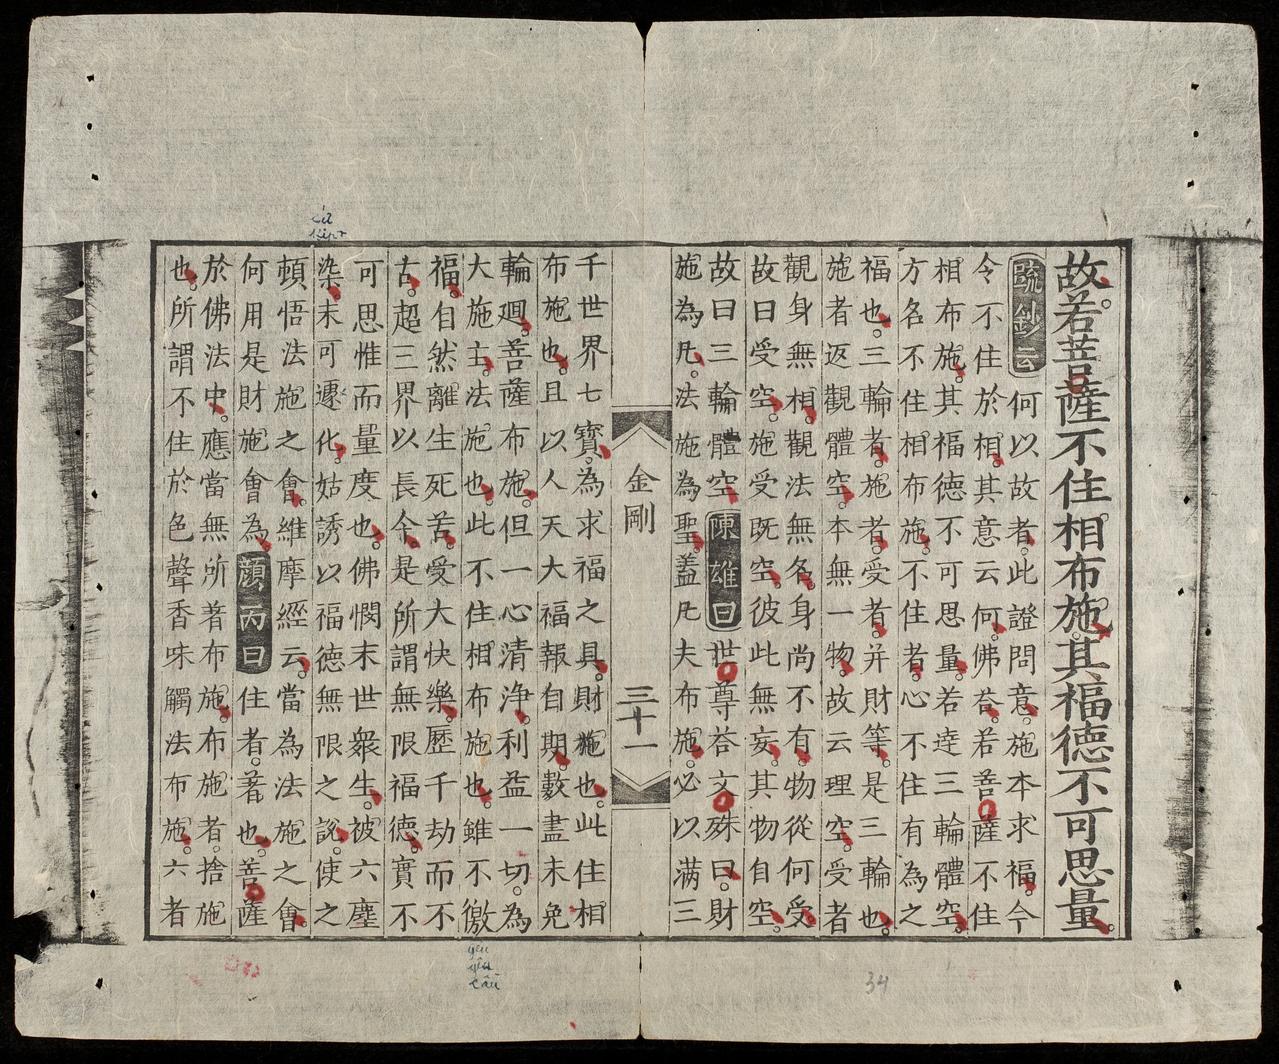 故若菩薩不住相布施其福德不可思量
疏鈔云何以故者此證問意施本求福今
令不住於相其意云何佛答若菩薩不住
相布施其福德不可思量若達三輪體空
方名不住相布施不住者心不住有為之
福也三輪者施者受者并財等是三輪也
施者返觀體空本無一物故云理空受者
觀身無相觀法無名身尚不有物從何受
故曰受空施受既空彼此無妄其物自空
故曰三輪體空陳雄曰世尊答文殊曰財
施為凡法施為聖蓋凡夫布施必以满三
金剛
三十一
千世界七寶為求福之具財施也此住相
布施也且以人天大福報自期數盡未免
輪廻菩薩布施但一心清淨利益一切為
大施主法施也此不住相布施也雖不徼
福自然離生死苦受大快樂歷千劫而不
古超三界以長今是所謂無限福德實不
可思惟而量度也佛憫末世衆生被六塵
染未可遷化姑誘以福德無限之說使之
頓悟法施之會維摩經云當為法施之會
何用是財施會為顏丙曰住者著也菩薩
於佛法中應當無所著布施布施者捨施
也所謂不住於色聲香味觸法布施六者
34